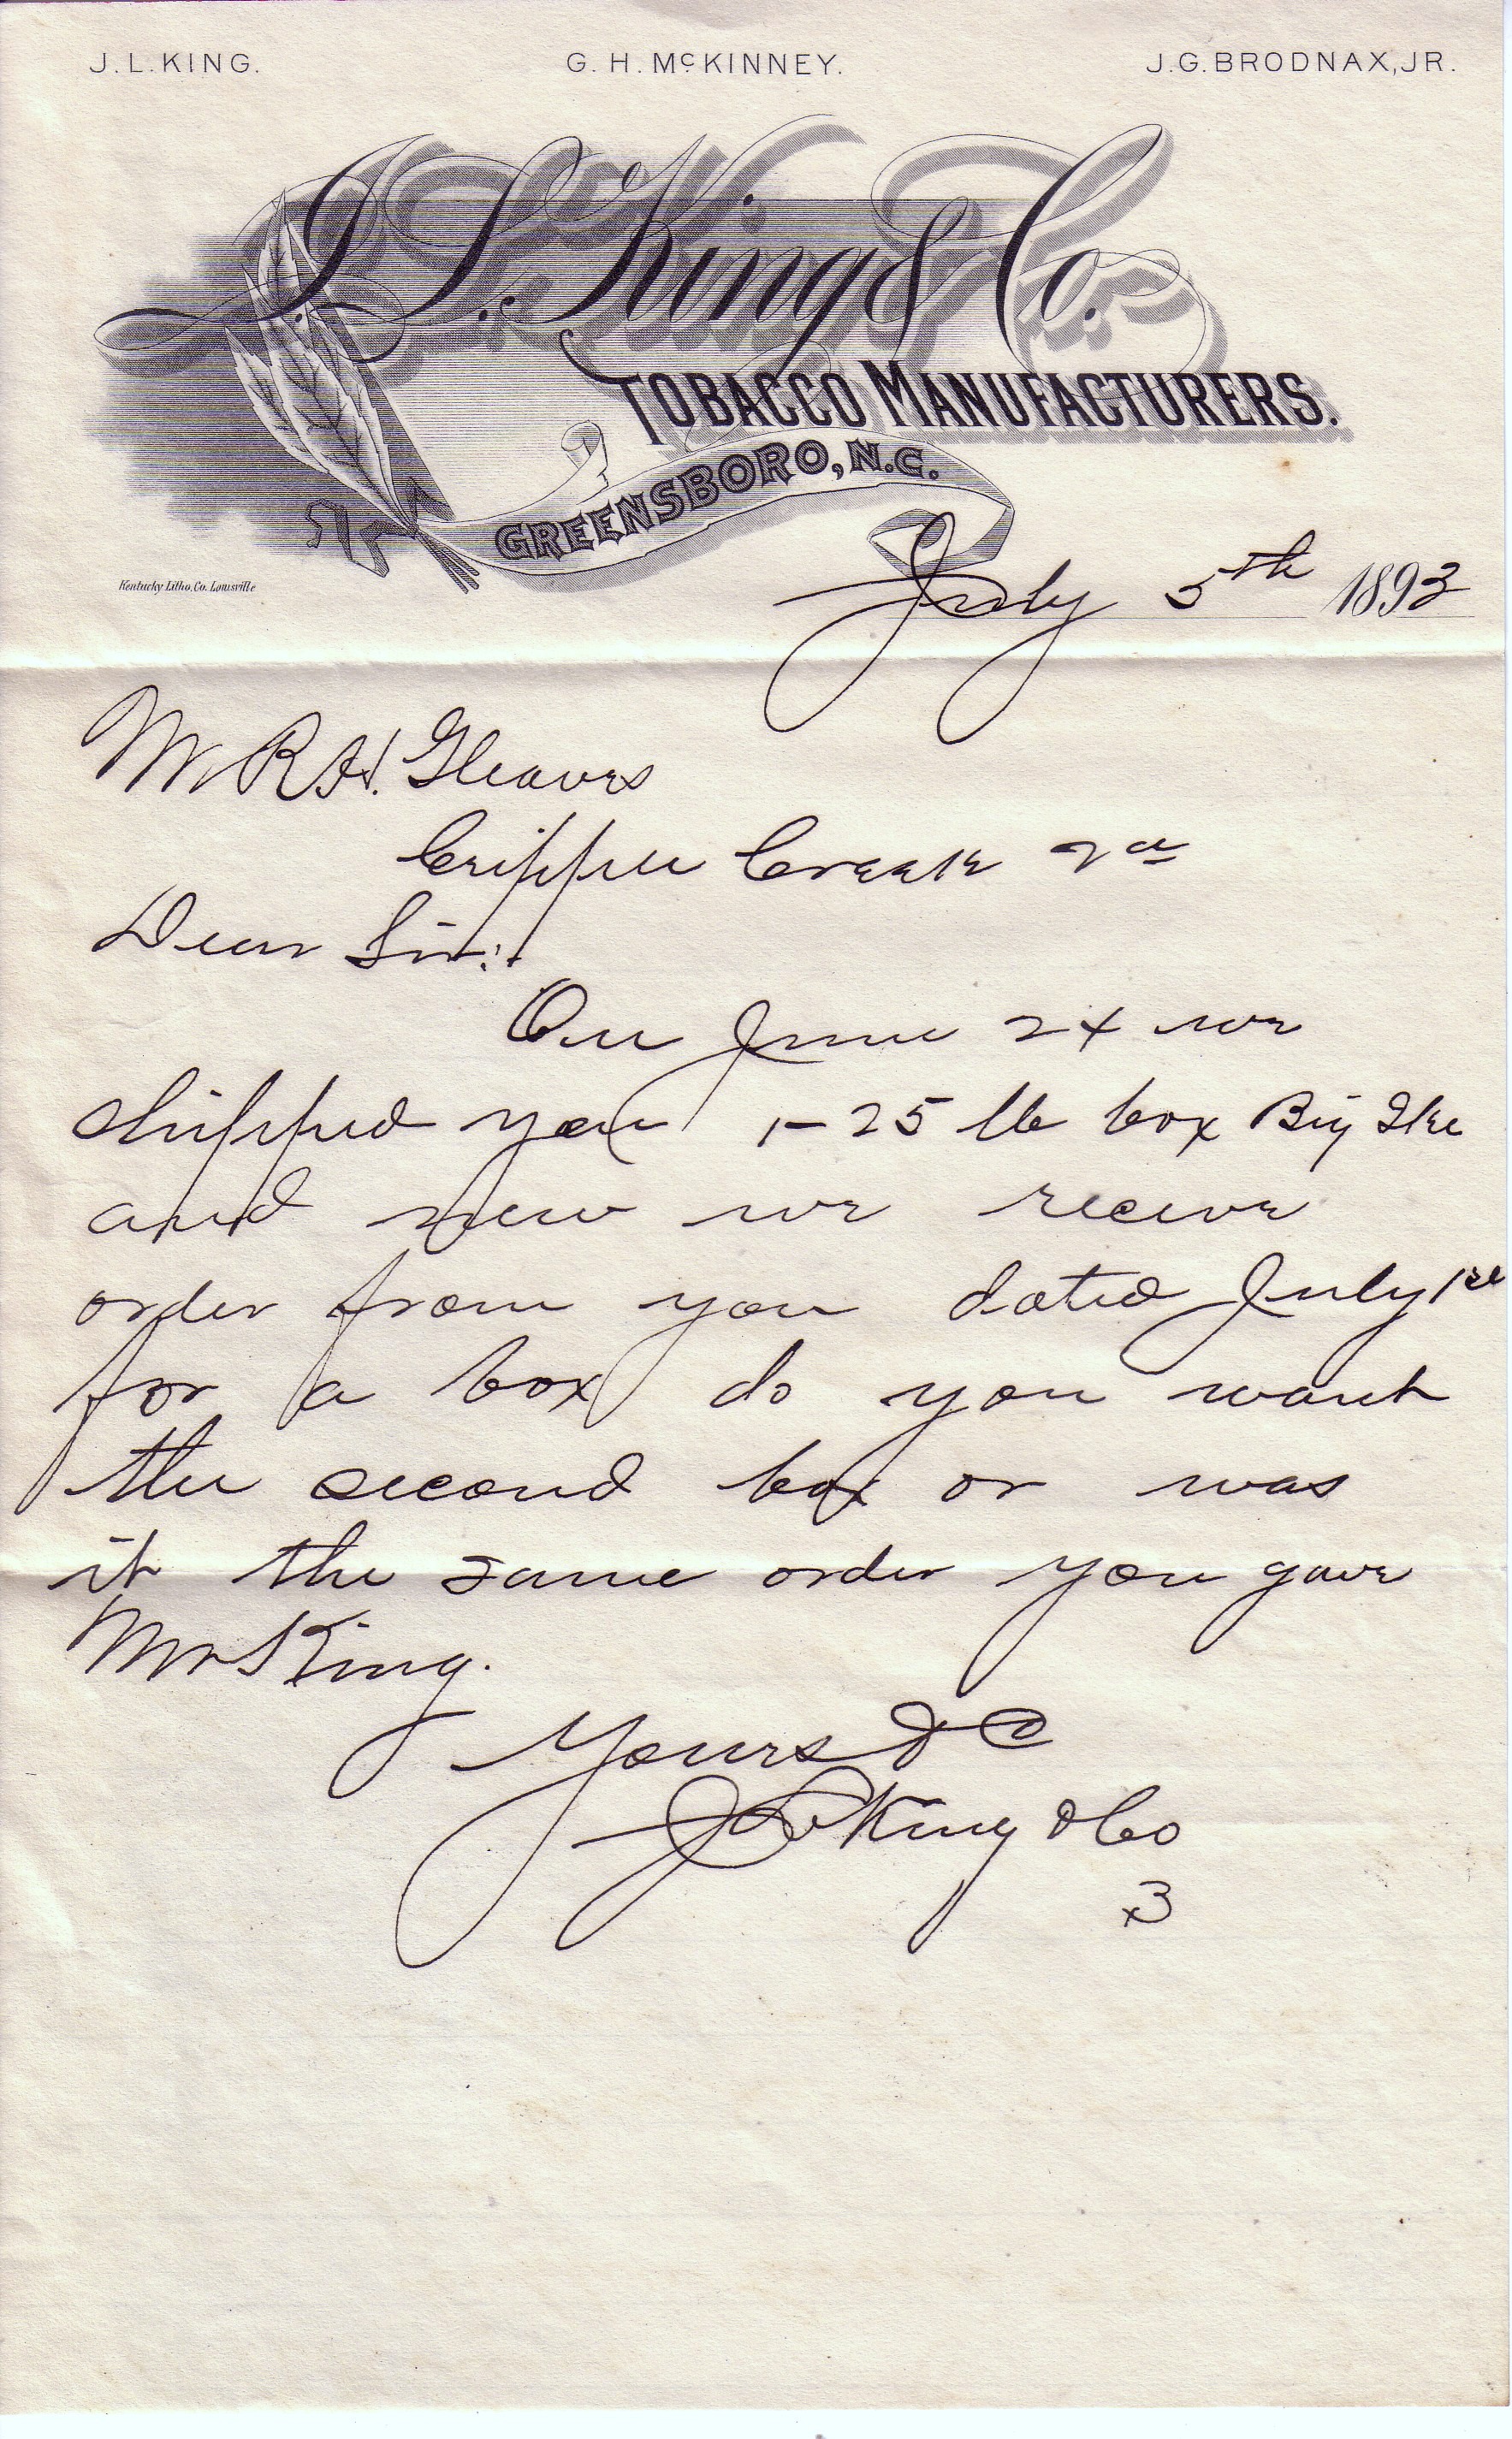 J. L. KING.
G. H. McKINNEY.
J. G. BRODNAX, JR.
J. L. King & Co.
TOBACCO MANUFACTURERS.
GREENSBORO, N.C.
Kentucky Litho. Co. Louisville
July 5th 1893
Mr R H. Gleaves
Cripple Creek Va
Dear Sir:
On June 24 we
shipped you 1-25 lb box Big Ike
and now we receive
order from you dated July 1st
for a box do you want
the second box or was
it the same order you gave
Mr King.
Yours &C
J L King & Co
x3